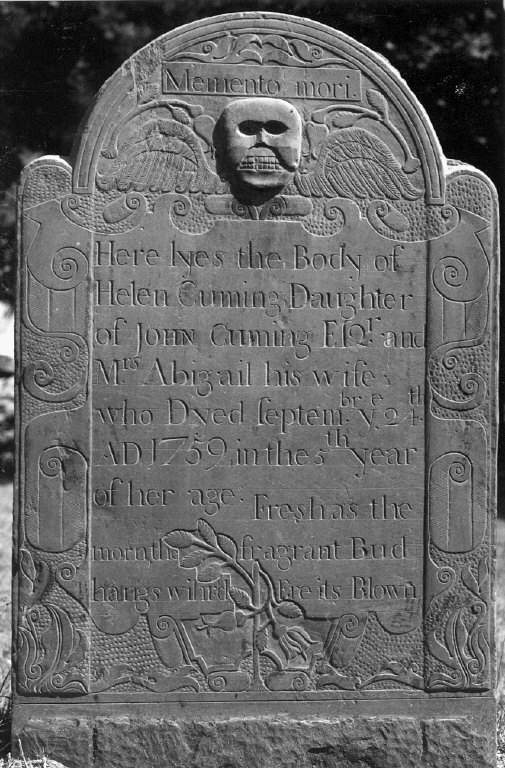 Memento mori.
Here lyes the Body of
Helen Cuming Daughter
of JOHN Cuming Eſqr and
Mrs Abigail his wife
who Dyed ſeptembre ye 24th
AD 1759 in the 5th year
of her age. Freſh as the
morn, the fragrant Bud
hangs wihrd Ere its Blown